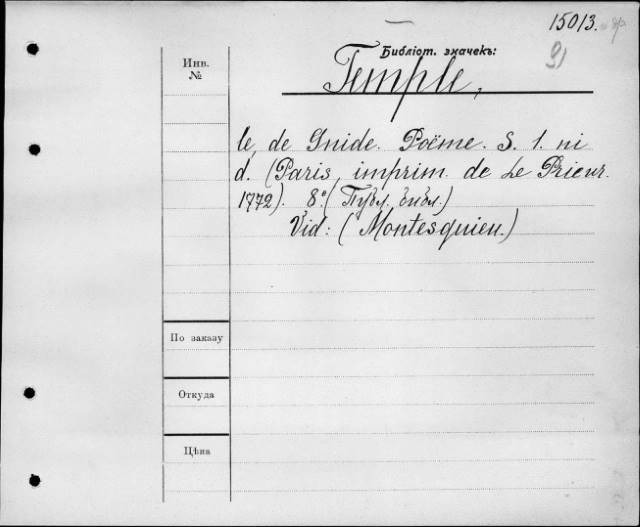 15013.
91
Библіот. значекъ:
Инв.
№
Temple,
le, de Gnide. Poëme. S. l. ni
d. (Paris, imprim. de Le Prieur.
1772). 8º. (Публ. библ.)
Vid: (Montesquieu.)
По заказу
Откуда
Цѣна